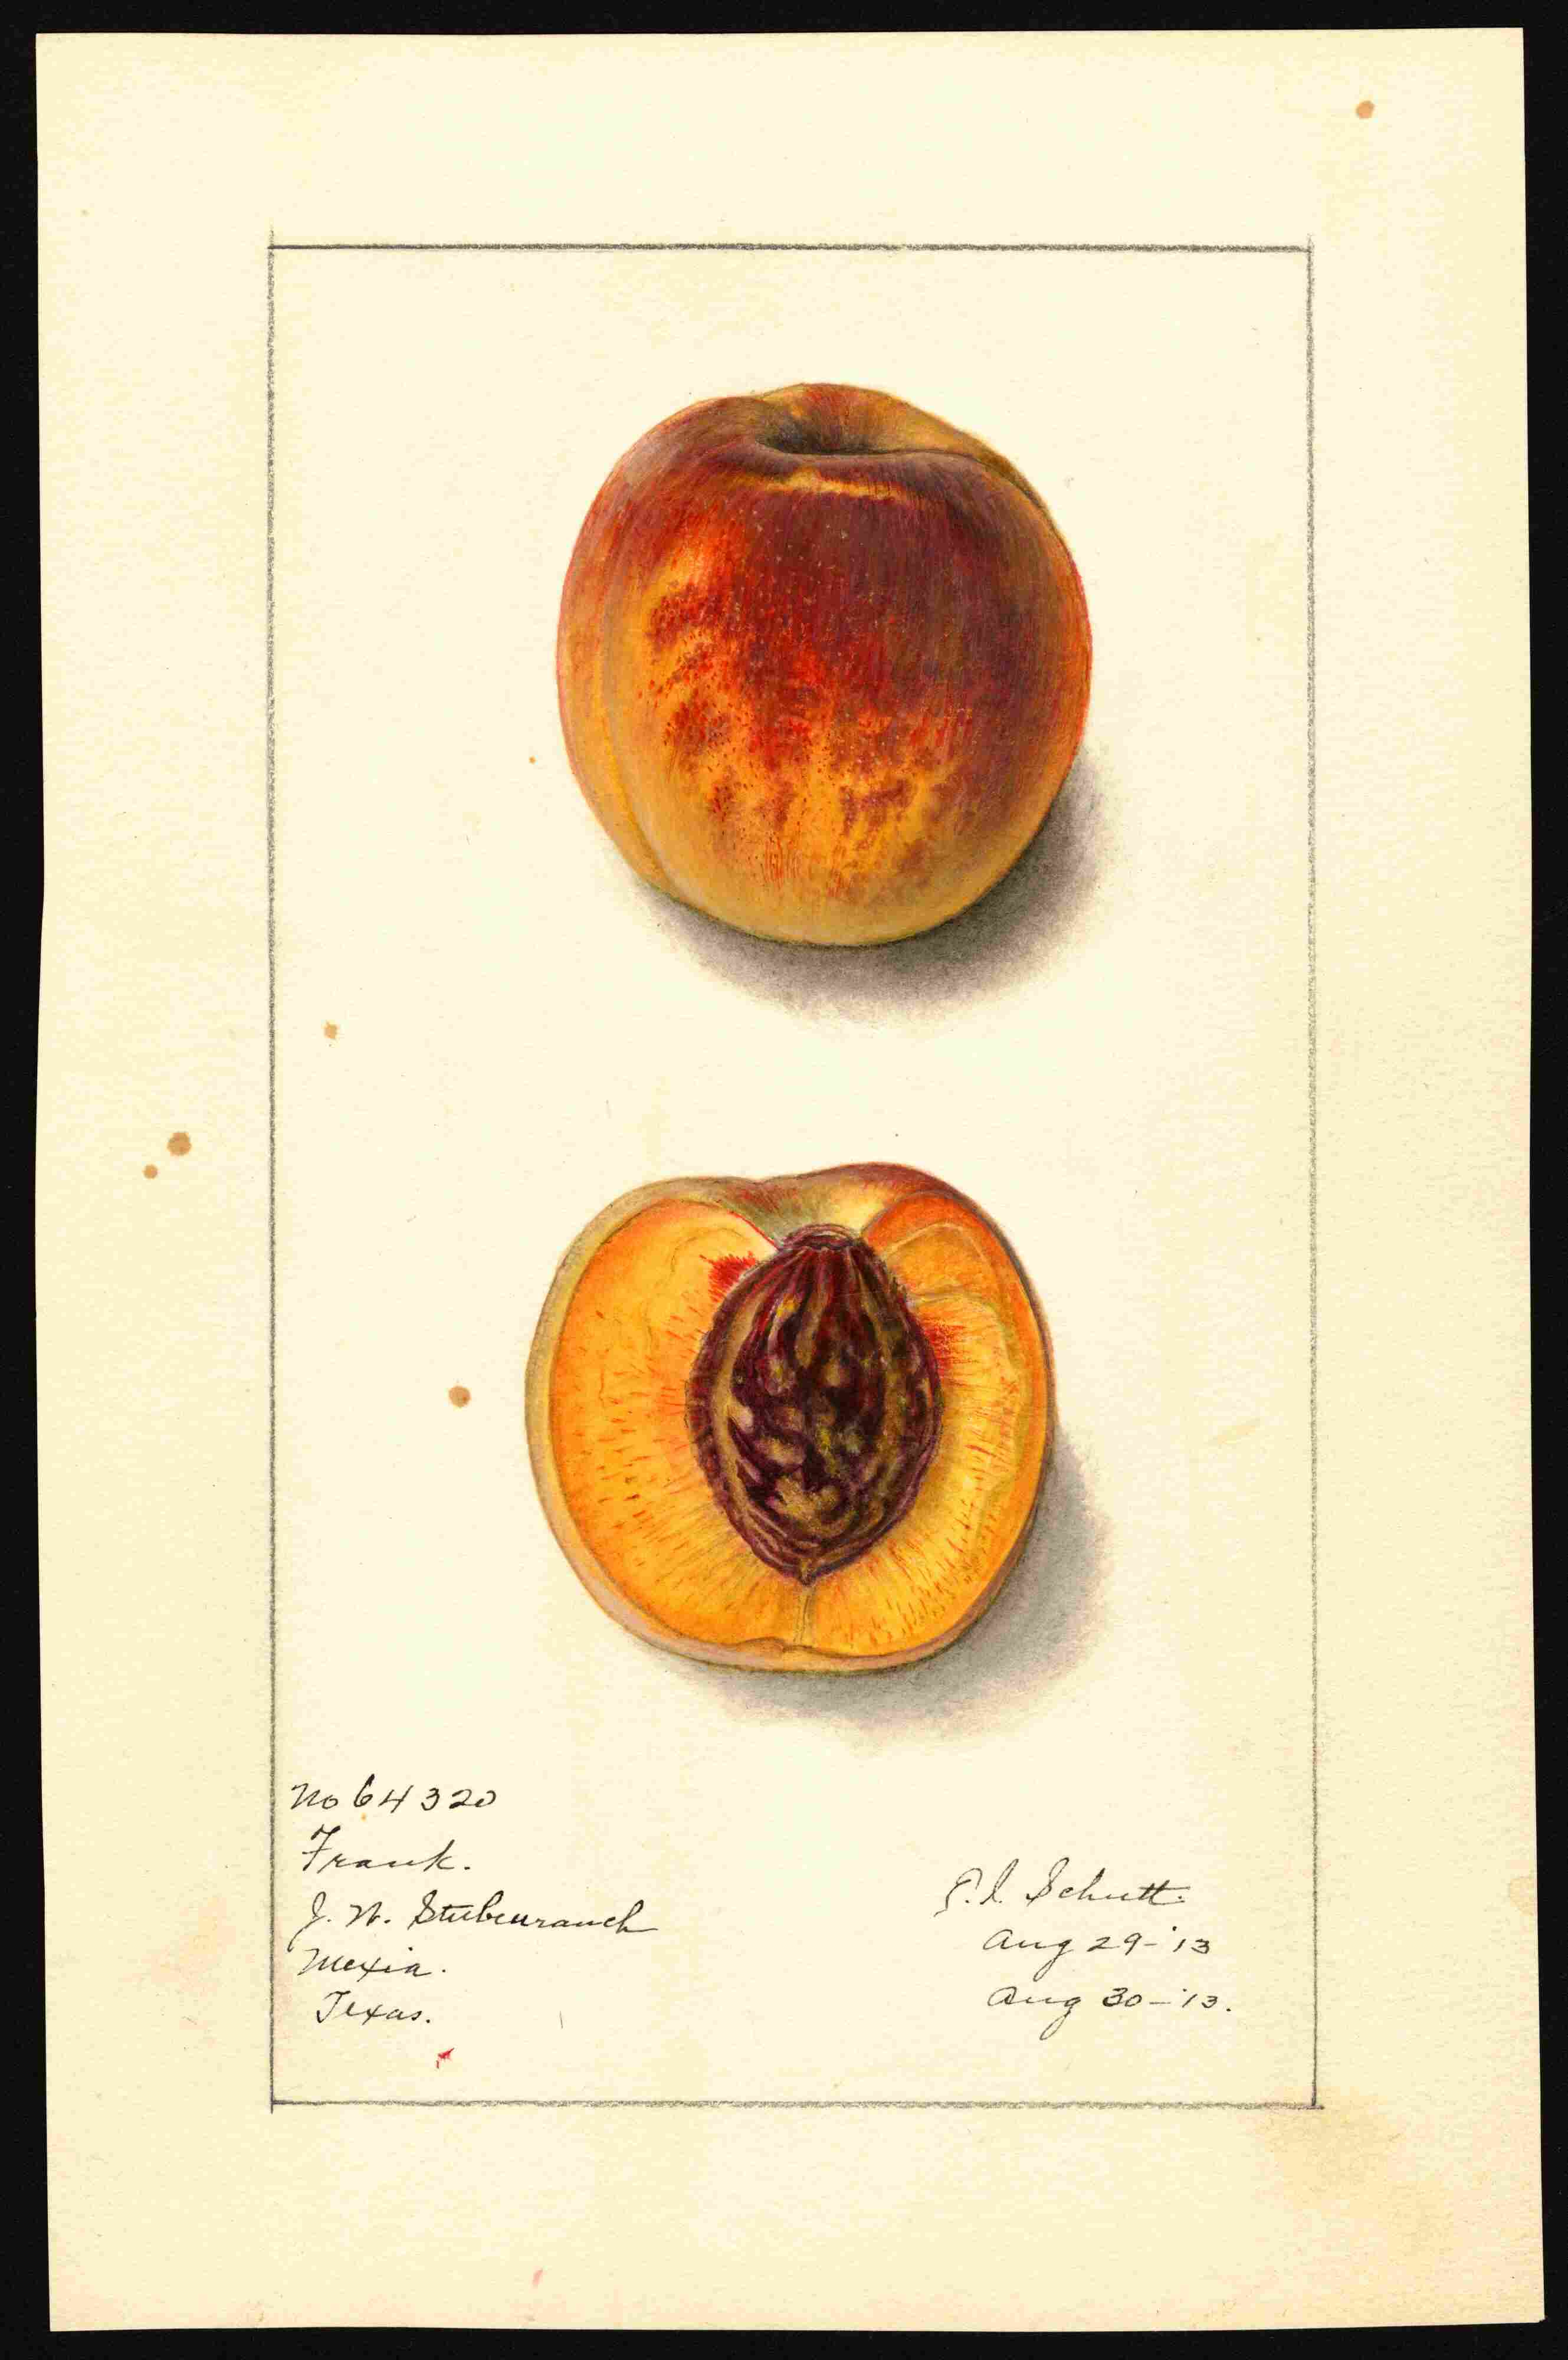 No 64320
Frank.
J. W. Stubenrauch
Mexia.
Texas.
E. I. Schutt.
Aug 29-'13
Aug 30-'13.